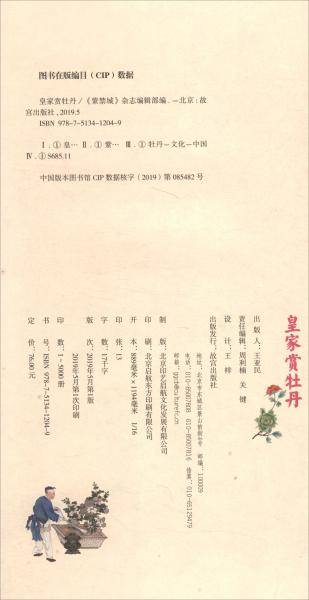 图书在版编目（CIP）数据
皇家赏牡丹/《紫禁城》杂志编辑部编.—北京：故
宫出版社，2019.5
ISBN 978-7-5134-1204-9
Ⅰ.①皇… Ⅱ.①紫… Ⅲ.①牡丹—文化—中国
Ⅳ.①S685.11
中国版本图书馆CIP数据核字（2019）第085482号
皇家赏牡丹
出版人：王亚民
责任编辑：周利楠 关键
设计：王梓
出版发行：故宫出版社
地址：北京市东城区景山前街4号 邮编：100009
电话：010-85007808 010-85007816 传真：010-65129479
邮箱：ggcb@culturefc.cn
制版：北京印艺启航文化发展有限公司
印刷：北京启航东方印刷有限公司
开本：889毫米×1194毫米 1/16
印张：13
字数：17千字
版次：2019年5月第1版
2019年5月第1次印刷
印数：1~5000册
书号：ISBN 978-7-5134-1204-9
定价：76.00元